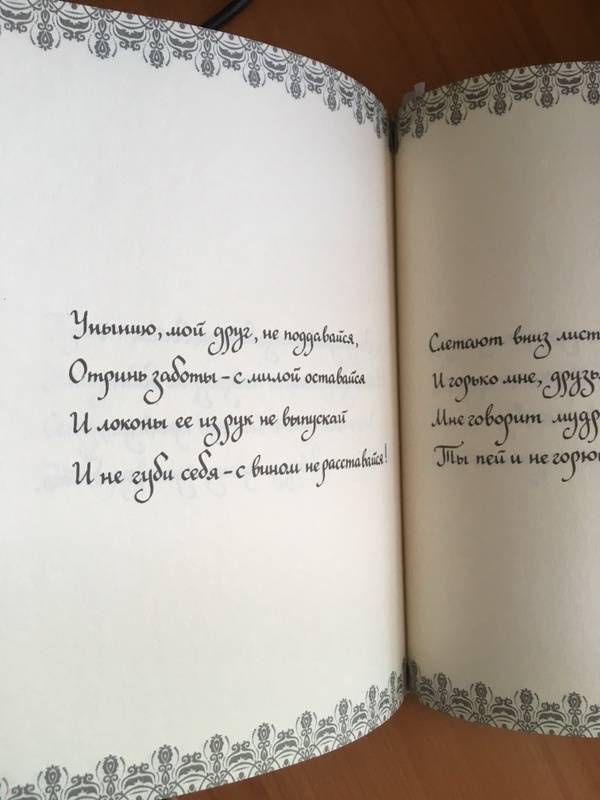 Унынию, мой друг, не поддавайся,
Отринь заботы – с милой оставайся
И локоны ее из рук не выпускай
И не губи себя – с вином не расставайся!
Слетают вниз
И горько мне,
Мне говорит
Ты пей и не